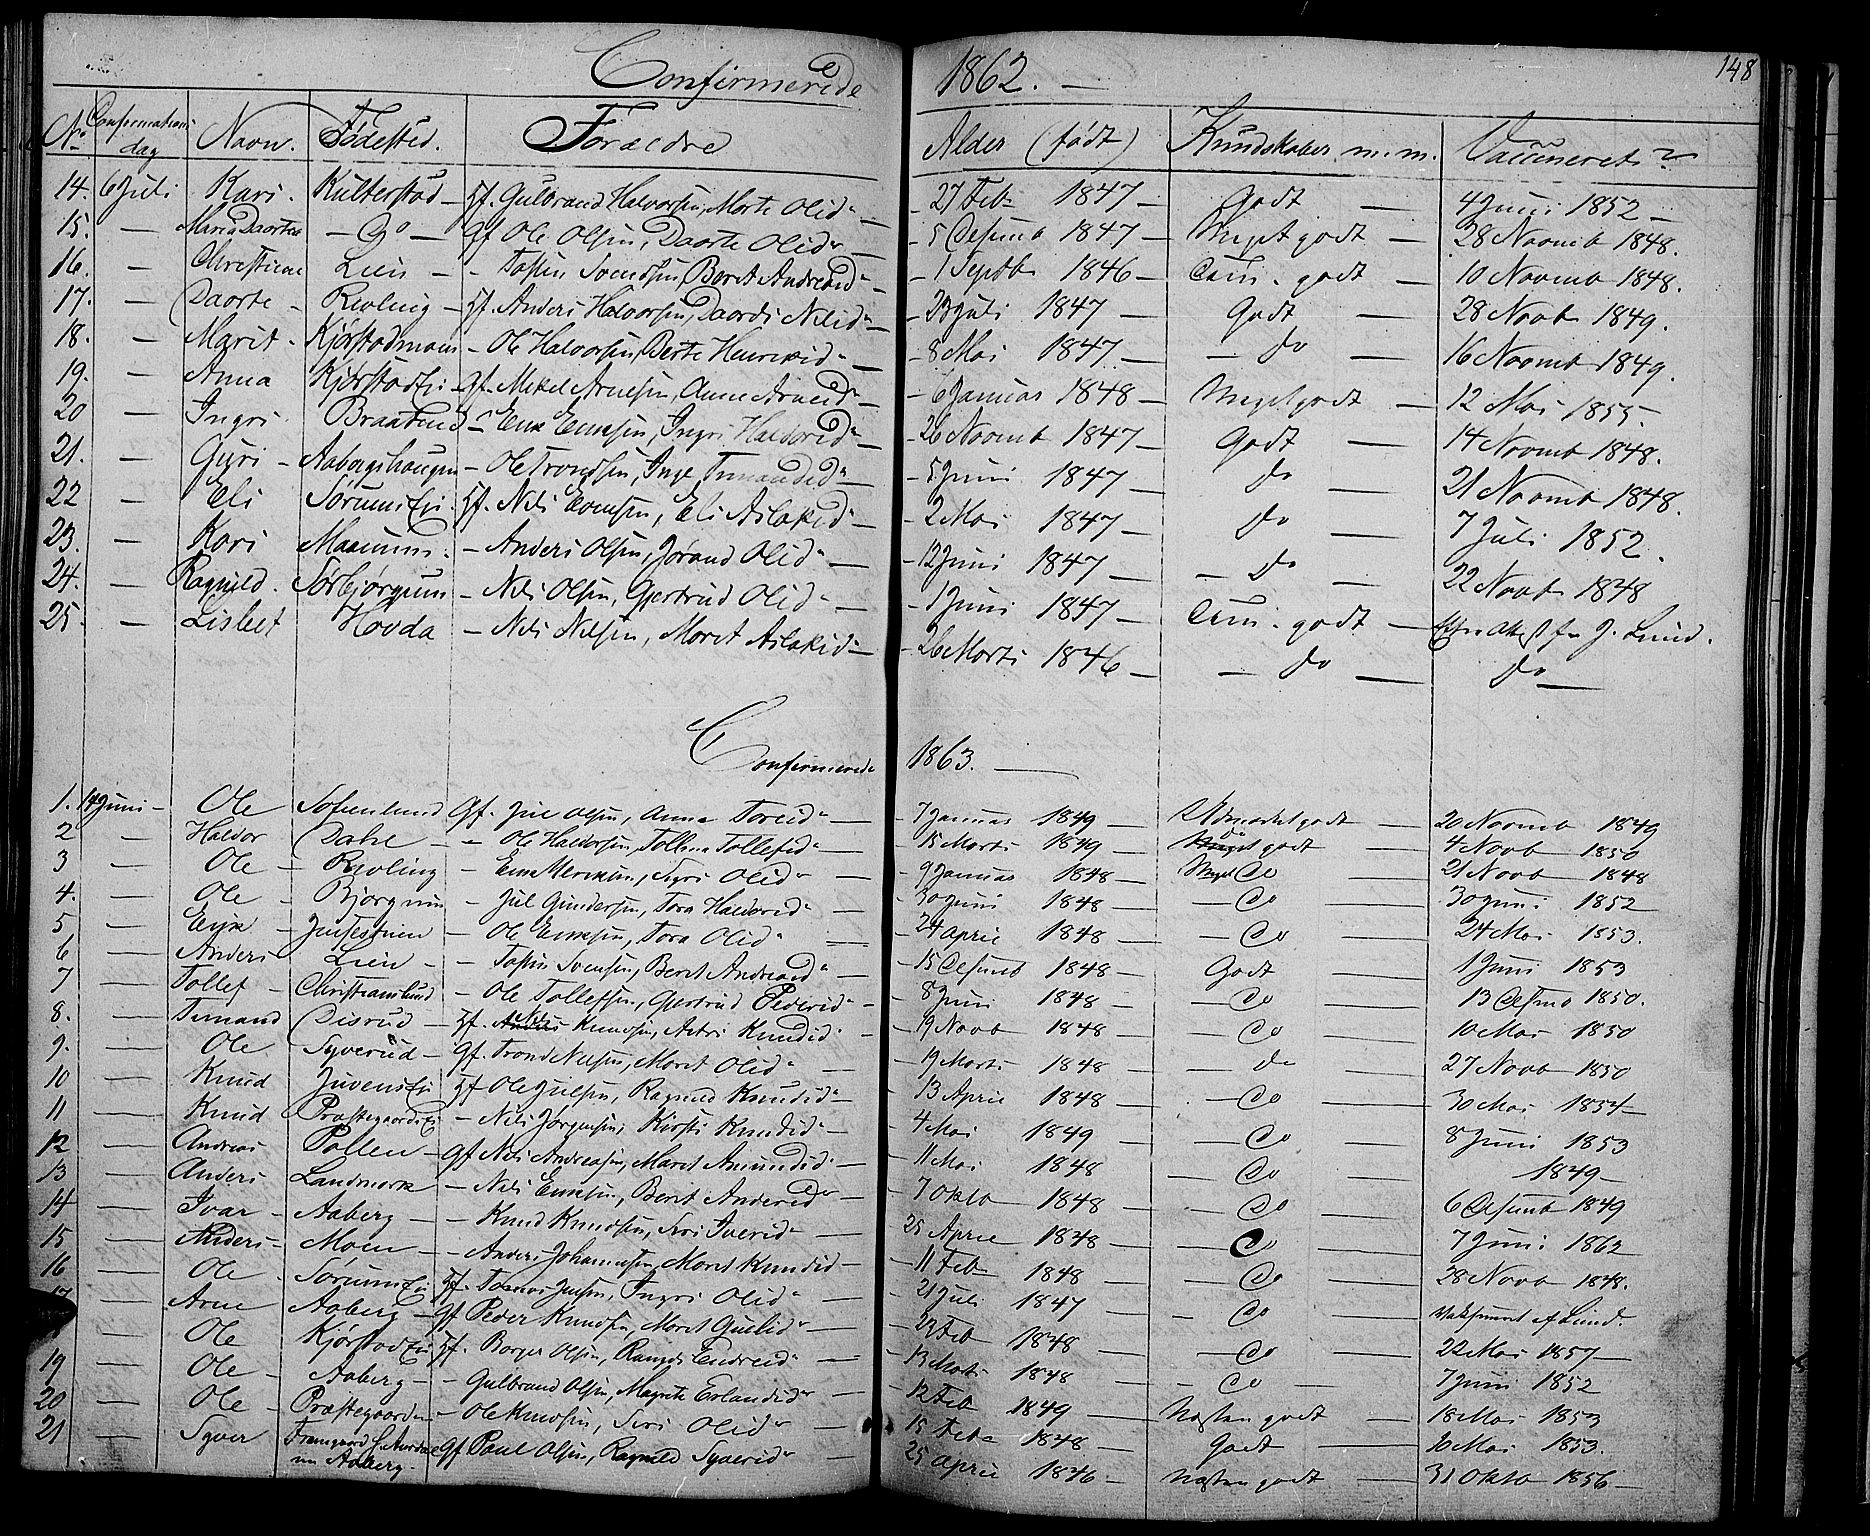 Confirmerede 1862. —
148
No Confirmations dag Navn. Fødested. Forældre Alder (født) Kundskaber m.m. Vaccineret
14. 6 Juli Kari. Kulterstad — Gulbrand Halvorsen, Marte Olsd. — 27 Feb 1847 — Godt — 4 Juni 1852 —
15. — Maria Daortea — Do — Gf. Ole Olsen, Daarte Olsd. — 5 Desemb 1847 — Meget godt — 28 Novmb 1848.
16. — Christiane Lien — Svendsen, Beret Andreasd. — 1 Septb 1846 — Tem. godt — 10 Novmb 1848.
17. — Daorte — Revling — Anders Halvorsen, Daordi Nilsd. — 23 Juli 1847 — Godt — 28 Novb 1849.
18. — Marit — Kjørstadmoen — Ole Halvorsen, Berte Henriksd. — 8 Mai 1847 — do — 16 Novmb 1849.
19. — Anna Kjørstad Ei — Gf. Mikel Arnesen, Anne Arnesd. — 6 Januar 1848 — Meget godt — 12 Mai 1855.
20 — Ingri Braaten — Erik Eriksen, Ingri Halvorsd. — 26 Novmb 1847 — Godt — 14 Novmb 1848.
21. — Guri — Aabergshaugen — Ole Trondsen, Inge — 5 Juni 1847 — do — 21 Novmb 1848.
22 — Eli Sørums Ei. Nils Evensen, Eli Aslaksd. — 2 Mai 1847 — do — 7 Juli 1852.
23. — Kari — Anders Olsen, Jørand Olsd. — 12 Juni 1847 — do — 22 Novb 1848
24. — Ragnild. Sørbjørgum — Nils Olsen, Gjertrud Olsd. — 1 Juni 1847 — Tem. godt — J. Lund.
25. — Lisbet Hovda — Nils Nilsen, Marit Aslaksd — 26 Marts 1846 — do — do —
Confirmerede 1863. —
1. 14 Juni — Ole Sofienlund Gf. Olsen, Anna — 7 Januar 1849 — Udmærket godt — 20 Novmb 1849
2 — Halvor Dahl — Ole Halvorsen, Tollefsd. — 15 Marts 1849 — godt — 4 Novb 1850
3 — Ole — Revling — Siri Olsd. — 9 Januar 1848 — Meget Do — 21 Novb 1848
4. — Ole — Bjørgum — Jul Gundersen, Tora Halvorsd. — 30 Juni 1848 — Do — 30 Juni 1852
5 — Erik — Ole Eriksen, Tora Olsd. — 24 April 1848 — Do — 24 Mai 1853.
6 — Anders Lien — Svensen, Berit Andreasd. — 15 Desemb 1848 — Godt — 1 Juni 1853
7 — Tollef — Christianslund — Ole Tollefsen, Gjertrud Pedersd. — 8 Juni 1848 — Do — 13 Desmb 1850.
8. — Disrud — Nils Knudsen, Astri Knudsd. — 19 Novb 1848 — Do — 10 Mai 1850
9. — Ole Syverud — gf. Trond Nilsen, Marit Olsd. — 19 Marts 1848 — do — 27 Novb 1850
10 — Knud Juvens Ei Ole Julsen, Ragnild Knudsd. — 13 April 1848 — Do — 30 Mai 1854
11 — Knud Præstegaards Ei — Nils Jørgensen, Kirsti Knudsd. — 4 Mai 1849 — Do — 8 Juni 1853
12 — Andreas Pollen — gf. Nils Andreasen, Marit Amundsd. — 11 Mai 1848 — Do — 1849 —
13 — Anders Landmark — Nils Eriksen, Berit Andersd. — 7 Oktb 1848 — Do — 6 Desemb 1849
14 — Ivar — Aaberg — Knud Knudsen, Siri Iversd. — 25 April 1848 — Do — 7 Juni 1862
15 — Anders — Moen — Anders Johannessen, Marit Knudsd — 11 Feb 1848 — Do — 28 Novb 1848.
16 — Ole — Sørums Ei Ingri Olsd. — 21 Juli 1847 — Do — af Lund.
17 — Arne Aaberg — gf. Peder Knudsen, Marit — 22 Feb 1848 — Do — 22 Mai 1857 —
— Ole Kjørstad Ei Borger Olsen, — 13 Marts 1848 — Do — 7 Juni 1852
19 — Ole — Aaberg — Gulbrand Olsen, Magrete Erlandsd. — 12 Feb 1849 — Næsten godt — 18 Mai 1853
20 — Ole — Præstegaarden — Ole Knudsen, Siri Olsd. — 15 Feb 1848 — Godt — 20 Mai 1853.
21 — Syver Framgaard S. Aurdal nu Aaberg. Gf. Paul Olsen, Ragnild Syversd. — 25 April 1846 — Næsten godt — 31 Oktb 1856 —